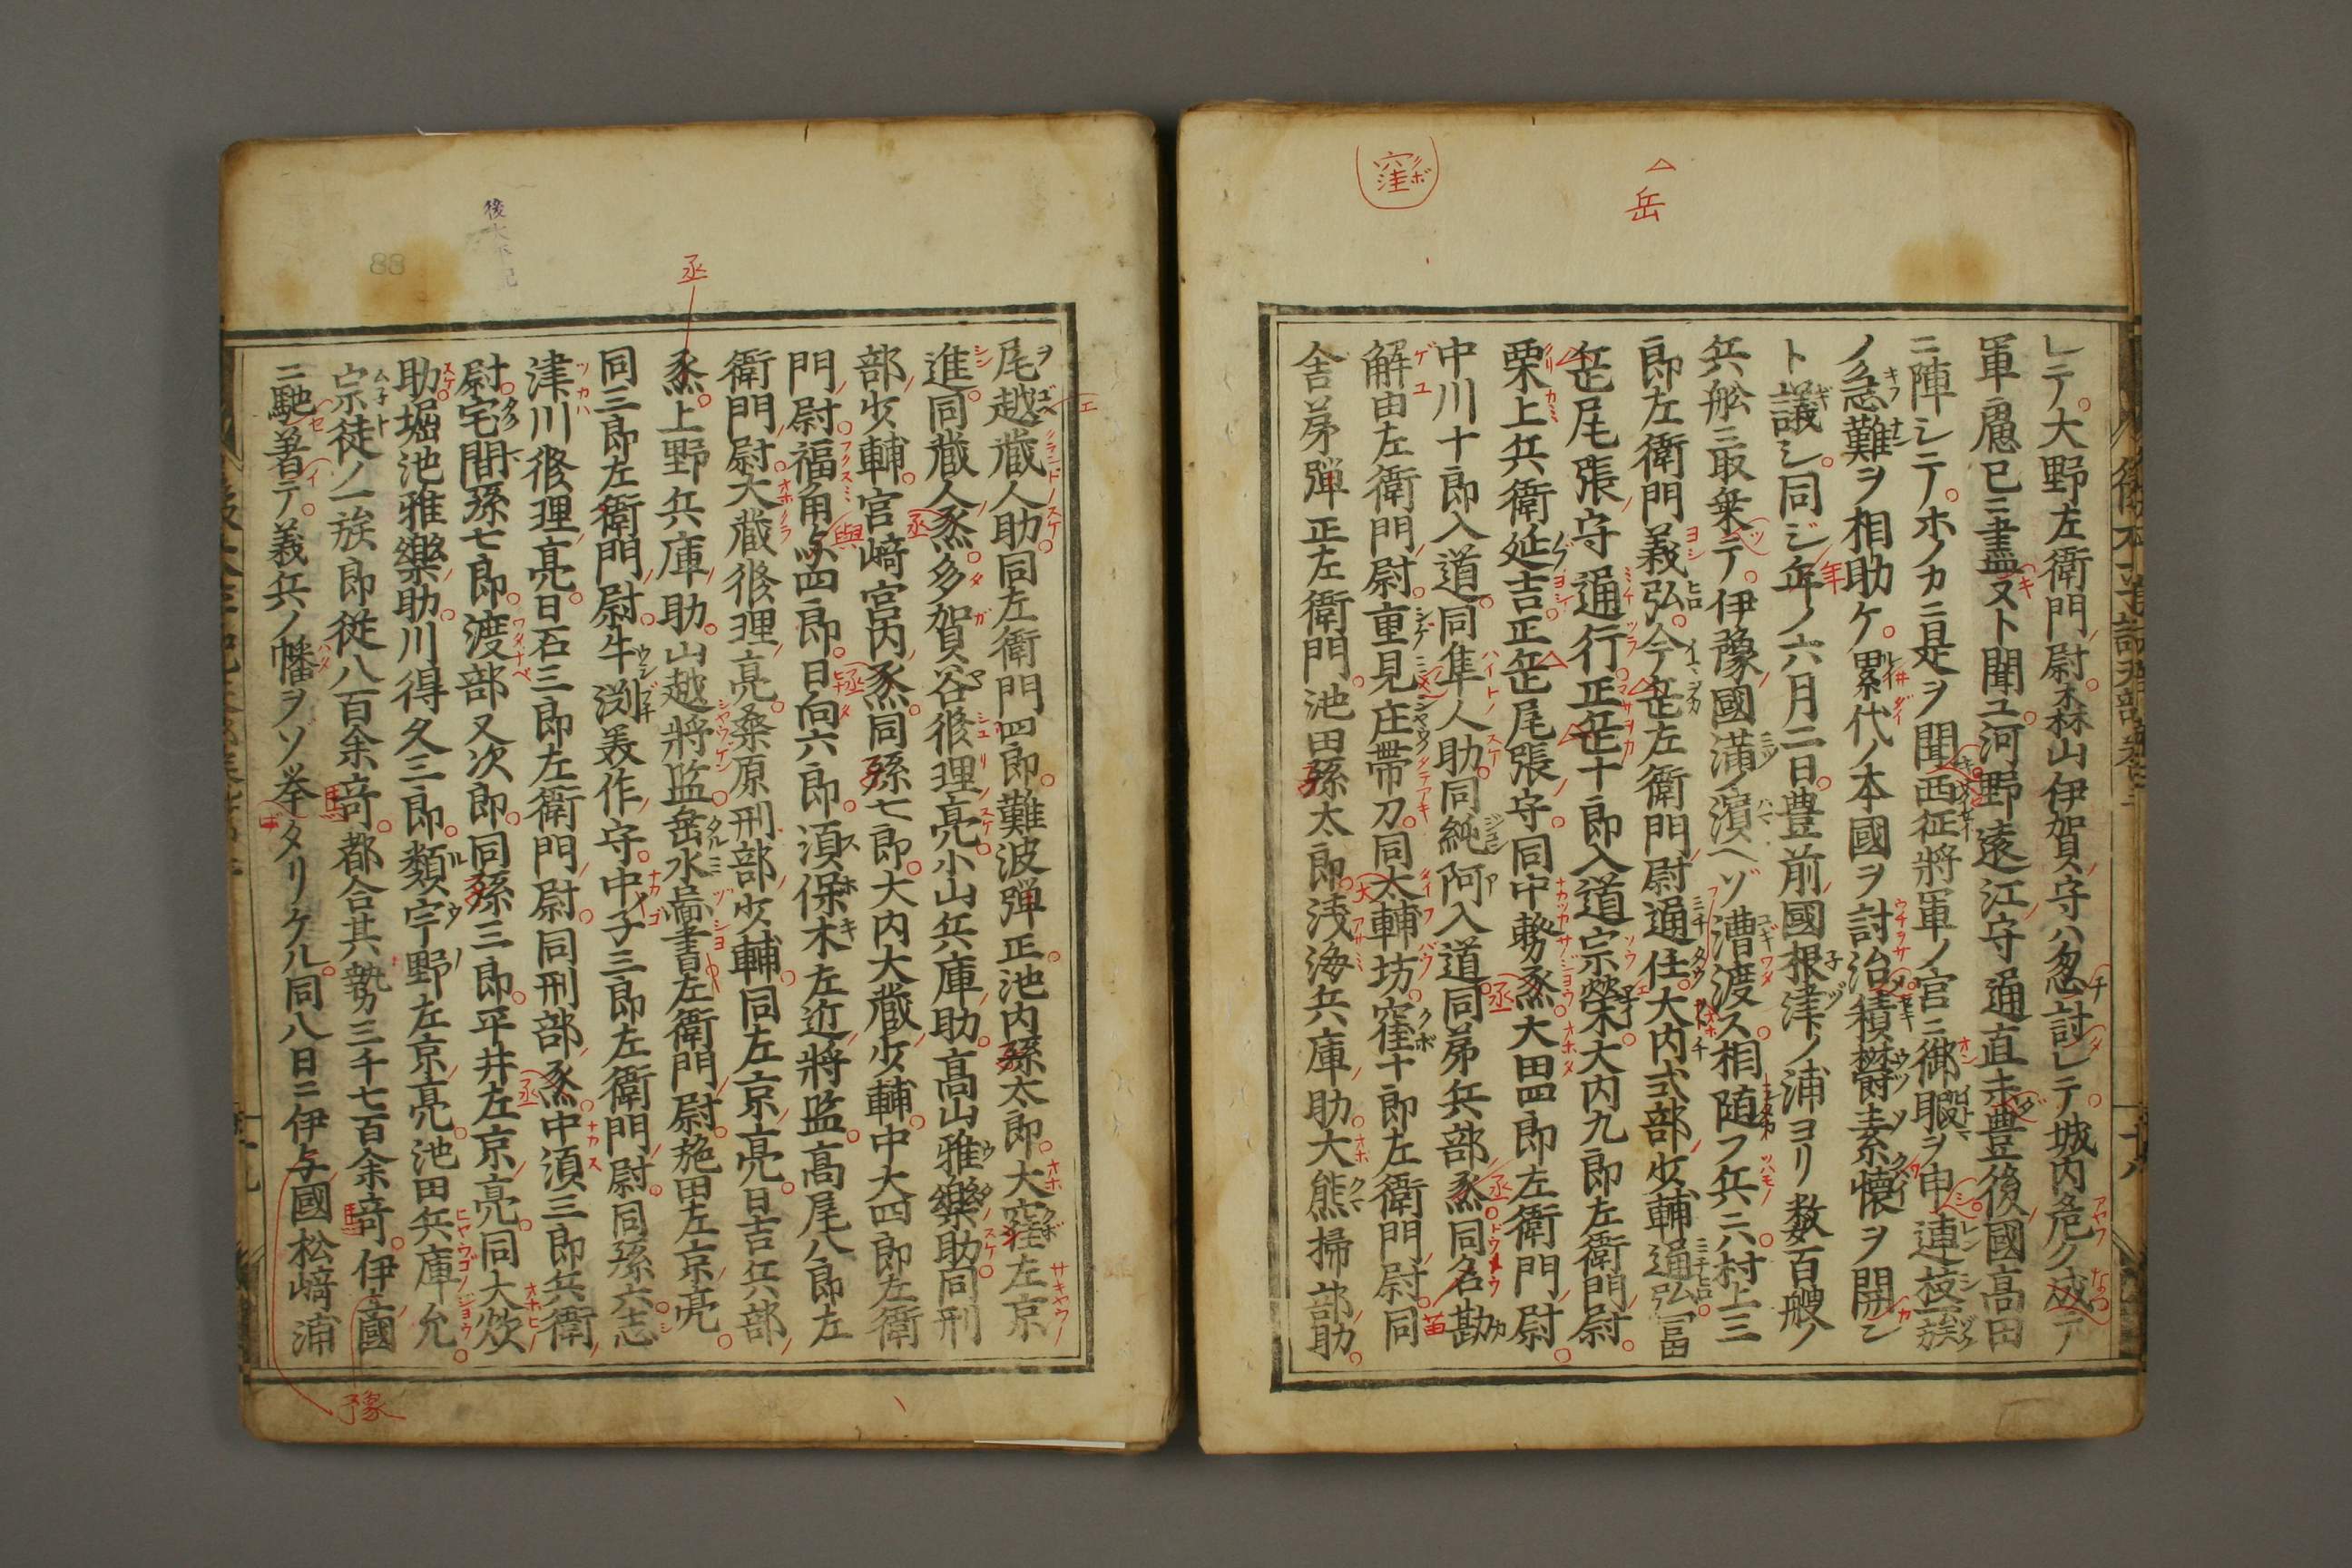 窪
クボ
岳
レテ大野左衛門尉森山伊賀守ハ怱討レテ城内危ク成テ
軍慮已ニ盡ヌト聞ユ河野遠江守通直未豊後國高田
ニ陣レテホノカニ是ヲ聞西征將軍ノ官ニ御暇ヲ申連枝一族
ノ急難ヲ相助ケ累代ノ本國ヲ討治積欝素懐ヲ開ン
ト議シ同ジ年ノ六月二日豊前國根津ノ浦ヨリ数百艘ノ
兵舩ニ取乗テ伊豫國満ノ濱ヘゾ漕渡ス相随フ兵ニハ村上三
郎左衛門義弘今岳左衛門尉通任大内式部少輔通弘冨
岳尾張守通行正岳十郎入道宗榮大内九郎左衛門尉
栗上兵衛延吉正岳尾張守同中務烝大田四郎左衛門尉
中川十郎入道同隼人助同純阿入道同弟兵部烝同名勘
解由左衛門尉重見庄帯刀同太輔坊窪十郎左衛門尉同
舎弟弾正左衛門池田孫太郎浅海兵庫助大熊掃部助
十八
後太平記
丞
尾越蔵人助同左衛門四郎難波弾正池内孫太郎大窪左京
進同蔵人烝多賀谷修理亮小山兵庫助高山雅樂助同刑
部少輔宮﨑宮内烝同孫七郎大内大蔵少輔中大四郎左衛
門尉福角与四郎日向六郎須保木左近將監高尾八郎左
衛門尉大蔵修理亮桑原刑部少輔同左京亮日吉兵部
烝上野兵庫助山越將監岳水圖書左衛門尉施田左京亮
同三郎左衛門尉牛渕美作守中子三郎左衛門尉同孫六志
津川修理亮日石三郎左衛門尉同刑部烝中須三郎兵衛
尉宅間孫七郎渡部又次郎同孫三郎平井左京亮同大炊
助堀池雅樂助川得久三郎類宇野左京亮池田兵庫允
宗徒ノ一族郎従八百余竒都合其勢三千七百余竒伊与國
ニ馳著テ義兵ノ幡ヲソ挙タリケル同八日ニ伊与國松﨑浦
豫